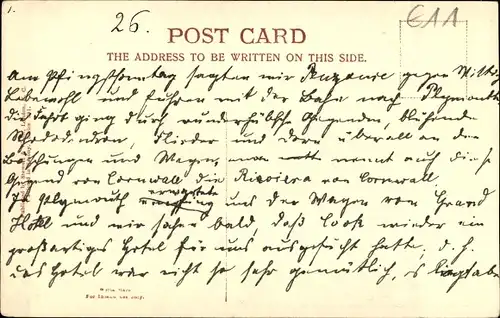 1.
26.
CAA
POST CARD
THE ADDRESS TO BE WRITTEN ON THIS SIDE.
Am Pfingstsonntag sagten wir Penzance gegen Mittag
Lebewohl und fuhren mit der Bahn nach Plymouth
die Fahrt ging durch wunderhübsche Gegenden, blühende
Rhododendron, Flieder und Dorn überall an den
Böschungen und Wegen, man nennt auch diese
Gegend von Cornwall die Riviera von Cornwall
In Plymouth erwartete uns der Wagen vom Grand
Hotel und wir sahen bald, daß Cook wieder ein
großartiges Hotel für uns ausgesucht hatte, d. h.
das Hotel war nicht so sehr gemütlich, es lag aber